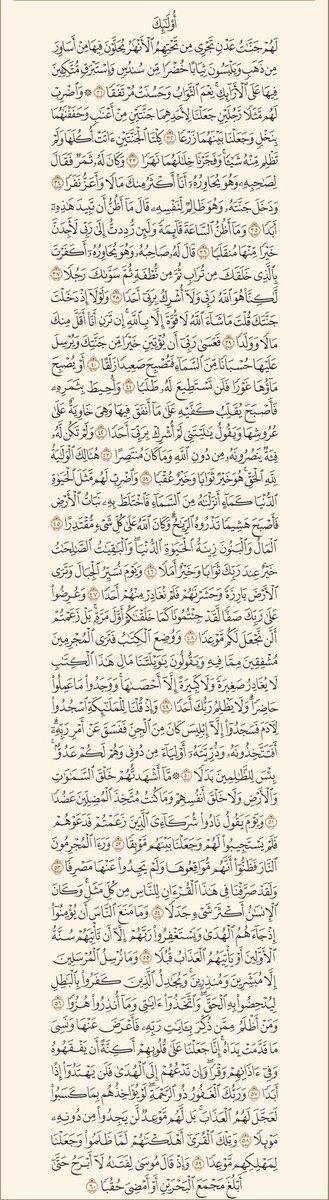 أُوْلَٰٓئِكَ
لَهُمۡ جَنَّٰتُ عَدۡنٖ تَجۡرِي مِن تَحۡتِهِمُ ٱلۡأَنۡهَٰرُ يُحَلَّوۡنَ فِيهَا مِنۡ أَسَاوِرَ
مِن ذَهَبٖ وَيَلۡبَسُونَ ثِيَابًا خُضۡرٗا مِّن سُندُسٖ وَإِسۡتَبۡرَقٖ مُّتَّكِـِٔينَ
فِيهَا عَلَى ٱلۡأَرَآئِكِۚ نِعۡمَ ٱلثَّوَابُ وَحَسُنَتۡ مُرۡتَفَقٗا ٣١ ۞ وَٱضۡرِبۡ
لَهُم مَّثَلٗا رَّجُلَيۡنِ جَعَلۡنَا لِأَحَدِهِمَا جَنَّتَيۡنِ مِنۡ أَعۡنَٰبٖ وَحَفَفۡنَٰهُمَا
بِنَخۡلٖ وَجَعَلۡنَا بَيۡنَهُمَا زَرۡعٗا ٣٢ كِلۡتَا ٱلۡجَنَّتَيۡنِ ءَاتَتۡ أُكُلَهَا وَلَمۡ
تَظۡلِم مِّنۡهُ شَيۡـٔٗاۚ وَفَجَّرۡنَا خِلَٰلَهُمَا نَهَرٗا ٣٣ وَكَانَ لَهُۥ ثَمَرٞ فَقَالَ
لِصَٰحِبِهِۦ وَهُوَ يُحَاوِرُهُۥٓ أَنَا۠ أَكۡثَرُ مِنكَ مَالٗا وَأَعَزُّ نَفَرٗا ٣٤
وَدَخَلَ جَنَّتَهُۥ وَهُوَ ظَالِمٞ لِّنَفۡسِهِۦ قَالَ مَآ أَظُنُّ أَن تَبِيدَ هَٰذِهِۦٓ
أَبَدٗا ٣٥ وَمَآ أَظُنُّ ٱلسَّاعَةَ قَآئِمَةٗ وَلَئِن رُّدِدتُّ إِلَىٰ رَبِّي لَأَجِدَنَّ
خَيۡرٗا مِّنۡهَا مُنقَلَبٗا ٣٦ قَالَ لَهُۥ صَاحِبُهُۥ وَهُوَ يُحَاوِرُهُۥٓ أَكَفَرۡتَ
بِٱلَّذِي خَلَقَكَ مِن تُرَابٖ ثُمَّ مِن نُّطۡفَةٖ ثُمَّ سَوَّىٰكَ رَجُلٗا ٣٧
لَّٰكِنَّا۠ هُوَ ٱللَّهُ رَبِّي وَلَآ أُشۡرِكُ بِرَبِّيٓ أَحَدٗا ٣٨ وَلَوۡلَآ إِذۡ دَخَلۡتَ
جَنَّتَكَ قُلۡتَ مَا شَآءَ ٱللَّهُ لَا قُوَّةَ إِلَّا بِٱللَّهِۚ إِن تَرَنِ أَنَا۠ أَقَلَّ مِنكَ
مَالٗا وَوَلَدٗا ٣٩ فَعَسَىٰ رَبِّيٓ أَن يُؤۡتِيَنِ خَيۡرٗا مِّن جَنَّتِكَ وَيُرۡسِلَ
عَلَيۡهَا حُسۡبَانٗا مِّنَ ٱلسَّمَآءِ فَتُصۡبِحَ صَعِيدٗا زَلَقًا ٤٠ أَوۡ يُصۡبِحَ
مَآؤُهَا غَوۡرٗا فَلَن تَسۡتَطِيعَ لَهُۥ طَلَبٗا ٤١ وَأُحِيطَ بِثَمَرِهِۦ
فَأَصۡبَحَ يُقَلِّبُ كَفَّيۡهِ عَلَىٰ مَآ أَنفَقَ فِيهَا وَهِيَ خَاوِيَةٌ عَلَىٰ
عُرُوشِهَا وَيَقُولُ يَٰلَيۡتَنِي لَمۡ أُشۡرِكۡ بِرَبِّيٓ أَحَدٗا ٤٢ وَلَمۡ تَكُن لَّهُۥ
فِئَةٞ يَنصُرُونَهُۥ مِن دُونِ ٱللَّهِ وَمَا كَانَ مُنتَصِرًا ٤٣ هُنَالِكَ ٱلۡوَلَٰيَةُ
لِلَّهِ ٱلۡحَقِّۚ هُوَ خَيۡرٞ ثَوَابٗا وَخَيۡرٌ عُقۡبٗا ٤٤ وَٱضۡرِبۡ لَهُم مَّثَلَ ٱلۡحَيَوٰةِ
ٱلدُّنۡيَا كَمَآءٍ أَنزَلۡنَٰهُ مِنَ ٱلسَّمَآءِ فَٱخۡتَلَطَ بِهِۦ نَبَاتُ ٱلۡأَرۡضِ
فَأَصۡبَحَ هَشِيمٗا تَذۡرُوهُ ٱلرِّيَٰحُۗ وَكَانَ ٱللَّهُ عَلَىٰ كُلِّ شَيۡءٖ مُّقۡتَدِرًا ٤٥
ٱلۡمَالُ وَٱلۡبَنُونَ زِينَةُ ٱلۡحَيَوٰةِ ٱلدُّنۡيَاۖ وَٱلۡبَٰقِيَٰتُ ٱلصَّٰلِحَٰتُ
خَيۡرٌ عِندَ رَبِّكَ ثَوَابٗا وَخَيۡرٌ أَمَلٗا ٤٦ وَيَوۡمَ نُسَيِّرُ ٱلۡجِبَالَ وَتَرَى
ٱلۡأَرۡضَ بَارِزَةٗ وَحَشَرۡنَٰهُمۡ فَلَمۡ نُغَادِرۡ مِنۡهُمۡ أَحَدٗا ٤٧ وَعُرِضُواْ
عَلَىٰ رَبِّكَ صَفّٗا لَّقَدۡ جِئۡتُمُونَا كَمَا خَلَقۡنَٰكُمۡ أَوَّلَ مَرَّةِۭۚ بَلۡ زَعَمۡتُمۡ
أَلَّن نَّجۡعَلَ لَكُم مَّوۡعِدٗا ٤٨ وَوُضِعَ ٱلۡكِتَٰبُ فَتَرَى ٱلۡمُجۡرِمِينَ
مُشۡفِقِينَ مِمَّا فِيهِ وَيَقُولُونَ يَٰوَيۡلَتَنَا مَالِ هَٰذَا ٱلۡكِتَٰبِ
لَا يُغَادِرُ صَغِيرَةٗ وَلَا كَبِيرَةً إِلَّآ أَحۡصَىٰهَاۚ وَوَجَدُواْ مَا عَمِلُواْ
حَاضِرٗاۗ وَلَا يَظۡلِمُ رَبُّكَ أَحَدٗا ٤٩ وَإِذۡ قُلۡنَا لِلۡمَلَٰٓئِكَةِ ٱسۡجُدُواْ
لِأٓدَمَ فَسَجَدُوٓاْ إِلَّآ إِبۡلِيسَ كَانَ مِنَ ٱلۡجِنِّ فَفَسَقَ عَنۡ أَمۡرِ رَبِّهِۦٓۗ
أَفَتَتَّخِذُونَهُۥ وَذُرِّيَّتَهُۥٓ أَوۡلِيَآءَ مِن دُونِي وَهُمۡ لَكُمۡ عَدُوُّۢۚ
بِئۡسَ لِلظَّٰلِمِينَ بَدَلٗا ٥٠ ۞ مَّآ أَشۡهَدتُّهُمۡ خَلۡقَ ٱلسَّمَٰوَٰتِ
وَٱلۡأَرۡضِ وَلَا خَلۡقَ أَنفُسِهِمۡ وَمَا كُنتُ مُتَّخِذَ ٱلۡمُضِلِّينَ عَضُدٗا
٥١ وَيَوۡمَ يَقُولُ نَادُواْ شُرَكَآءِيَ ٱلَّذِينَ زَعَمۡتُمۡ فَدَعَوۡهُمۡ
فَلَمۡ يَسۡتَجِيبُواْ لَهُمۡ وَجَعَلۡنَا بَيۡنَهُم مَّوۡبِقٗا ٥٢ وَرَءَا ٱلۡمُجۡرِمُونَ
ٱلنَّارَ فَظَنُّوٓاْ أَنَّهُم مُّوَاقِعُوهَا وَلَمۡ يَجِدُواْ عَنۡهَا مَصۡرِفٗا ٥٣
وَلَقَدۡ صَرَّفۡنَا فِي هَٰذَا ٱلۡقُرۡءَانِ لِلنَّاسِ مِن كُلِّ مَثَلٖۚ وَكَانَ
ٱلۡإِنسَٰنُ أَكۡثَرَ شَيۡءٖ جَدَلٗا ٥٤ وَمَا مَنَعَ ٱلنَّاسَ أَن يُؤۡمِنُوٓاْ
إِذۡ جَآءَهُمُ ٱلۡهُدَىٰ وَيَسۡتَغۡفِرُواْ رَبَّهُمۡ إِلَّآ أَن تَأۡتِيَهُمۡ سُنَّةُ
ٱلۡأَوَّلِينَ أَوۡ يَأۡتِيَهُمُ ٱلۡعَذَابُ قُبُلٗا ٥٥ وَمَا نُرۡسِلُ ٱلۡمُرۡسَلِينَ
إِلَّا مُبَشِّرِينَ وَمُنذِرِينَۚ وَيُجَٰدِلُ ٱلَّذِينَ كَفَرُواْ بِٱلۡبَٰطِلِ
لِيُدۡحِضُواْ بِهِ ٱلۡحَقَّۖ وَٱتَّخَذُوٓاْ ءَايَٰتِي وَمَآ أُنذِرُواْ هُزُوٗا ٥٦
وَمَنۡ أَظۡلَمُ مِمَّن ذُكِّرَ بِـَٔايَٰتِ رَبِّهِۦ فَأَعۡرَضَ عَنۡهَا وَنَسِيَ
مَا قَدَّمَتۡ يَدَاهُۚ إِنَّا جَعَلۡنَا عَلَىٰ قُلُوبِهِمۡ أَكِنَّةً أَن يَفۡقَهُوهُ
وَفِيٓ ءَاذَانِهِمۡ وَقۡرٗاۖ وَإِن تَدۡعُهُمۡ إِلَى ٱلۡهُدَىٰ فَلَن يَهۡتَدُوٓاْ إِذًا
أَبَدٗا ٥٧ وَرَبُّكَ ٱلۡغَفُورُ ذُو ٱلرَّحۡمَةِۖ لَوۡ يُؤَاخِذُهُم بِمَا كَسَبُواْ
لَعَجَّلَ لَهُمُ ٱلۡعَذَابَۚ بَل لَّهُم مَّوۡعِدٞ لَّن يَجِدُواْ مِن دُونِهِۦ
مَوۡئِلٗا ٥٨ وَتِلۡكَ ٱلۡقُرَىٰٓ أَهۡلَكۡنَٰهُمۡ لَمَّا ظَلَمُواْ وَجَعَلۡنَا
لِمَهۡلِكِهِم مَّوۡعِدٗا ٥٩ وَإِذۡ قَالَ مُوسَىٰ لِفَتَىٰهُ لَآ أَبۡرَحُ حَتَّىٰٓ
أَبۡلُغَ مَجۡمَعَ ٱلۡبَحۡرَيۡنِ أَوۡ أَمۡضِيَ حُقُبٗا ٦٠